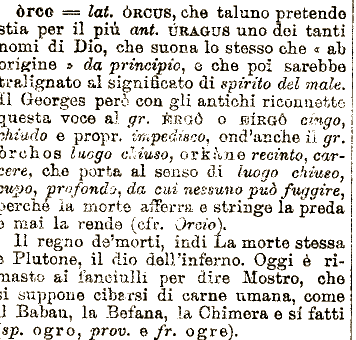 òrco = lat. ÒRCUS, che taluno pretende
stia per il più ant. URAGUS uno dei tanti
nomi di Dio, che suona lo stesso che « ab
origine » da principio, e che poi sarebbe
tralignato al significato di spirito del male.
Il Georges però con gli antichi riconnette
questa voce al gr. ÈRGÔ o EÍRGÔ cingo,
chiudo e propr. impedisco, ond'anche il gr.
òrchos luogo chiuso, orkàne recinto, car-
cere, che porta al senso di luogo chiuso,
cupo, profondo, da cui nessuno può fuggire,
perchè la morte afferra e stringe la preda
e mai la rende (cfr. Orcio).
Il regno de'morti, indi La morte stessa
e Plutone, il dio dell'inferno. Oggi è ri-
masto ai fanciulli per dire Mostro, che
si suppone cibarsi di carne umana, come
il Babau, la Befana, la Chimera e sí fatti
(sp. ogro, prov. e fr. ogre).